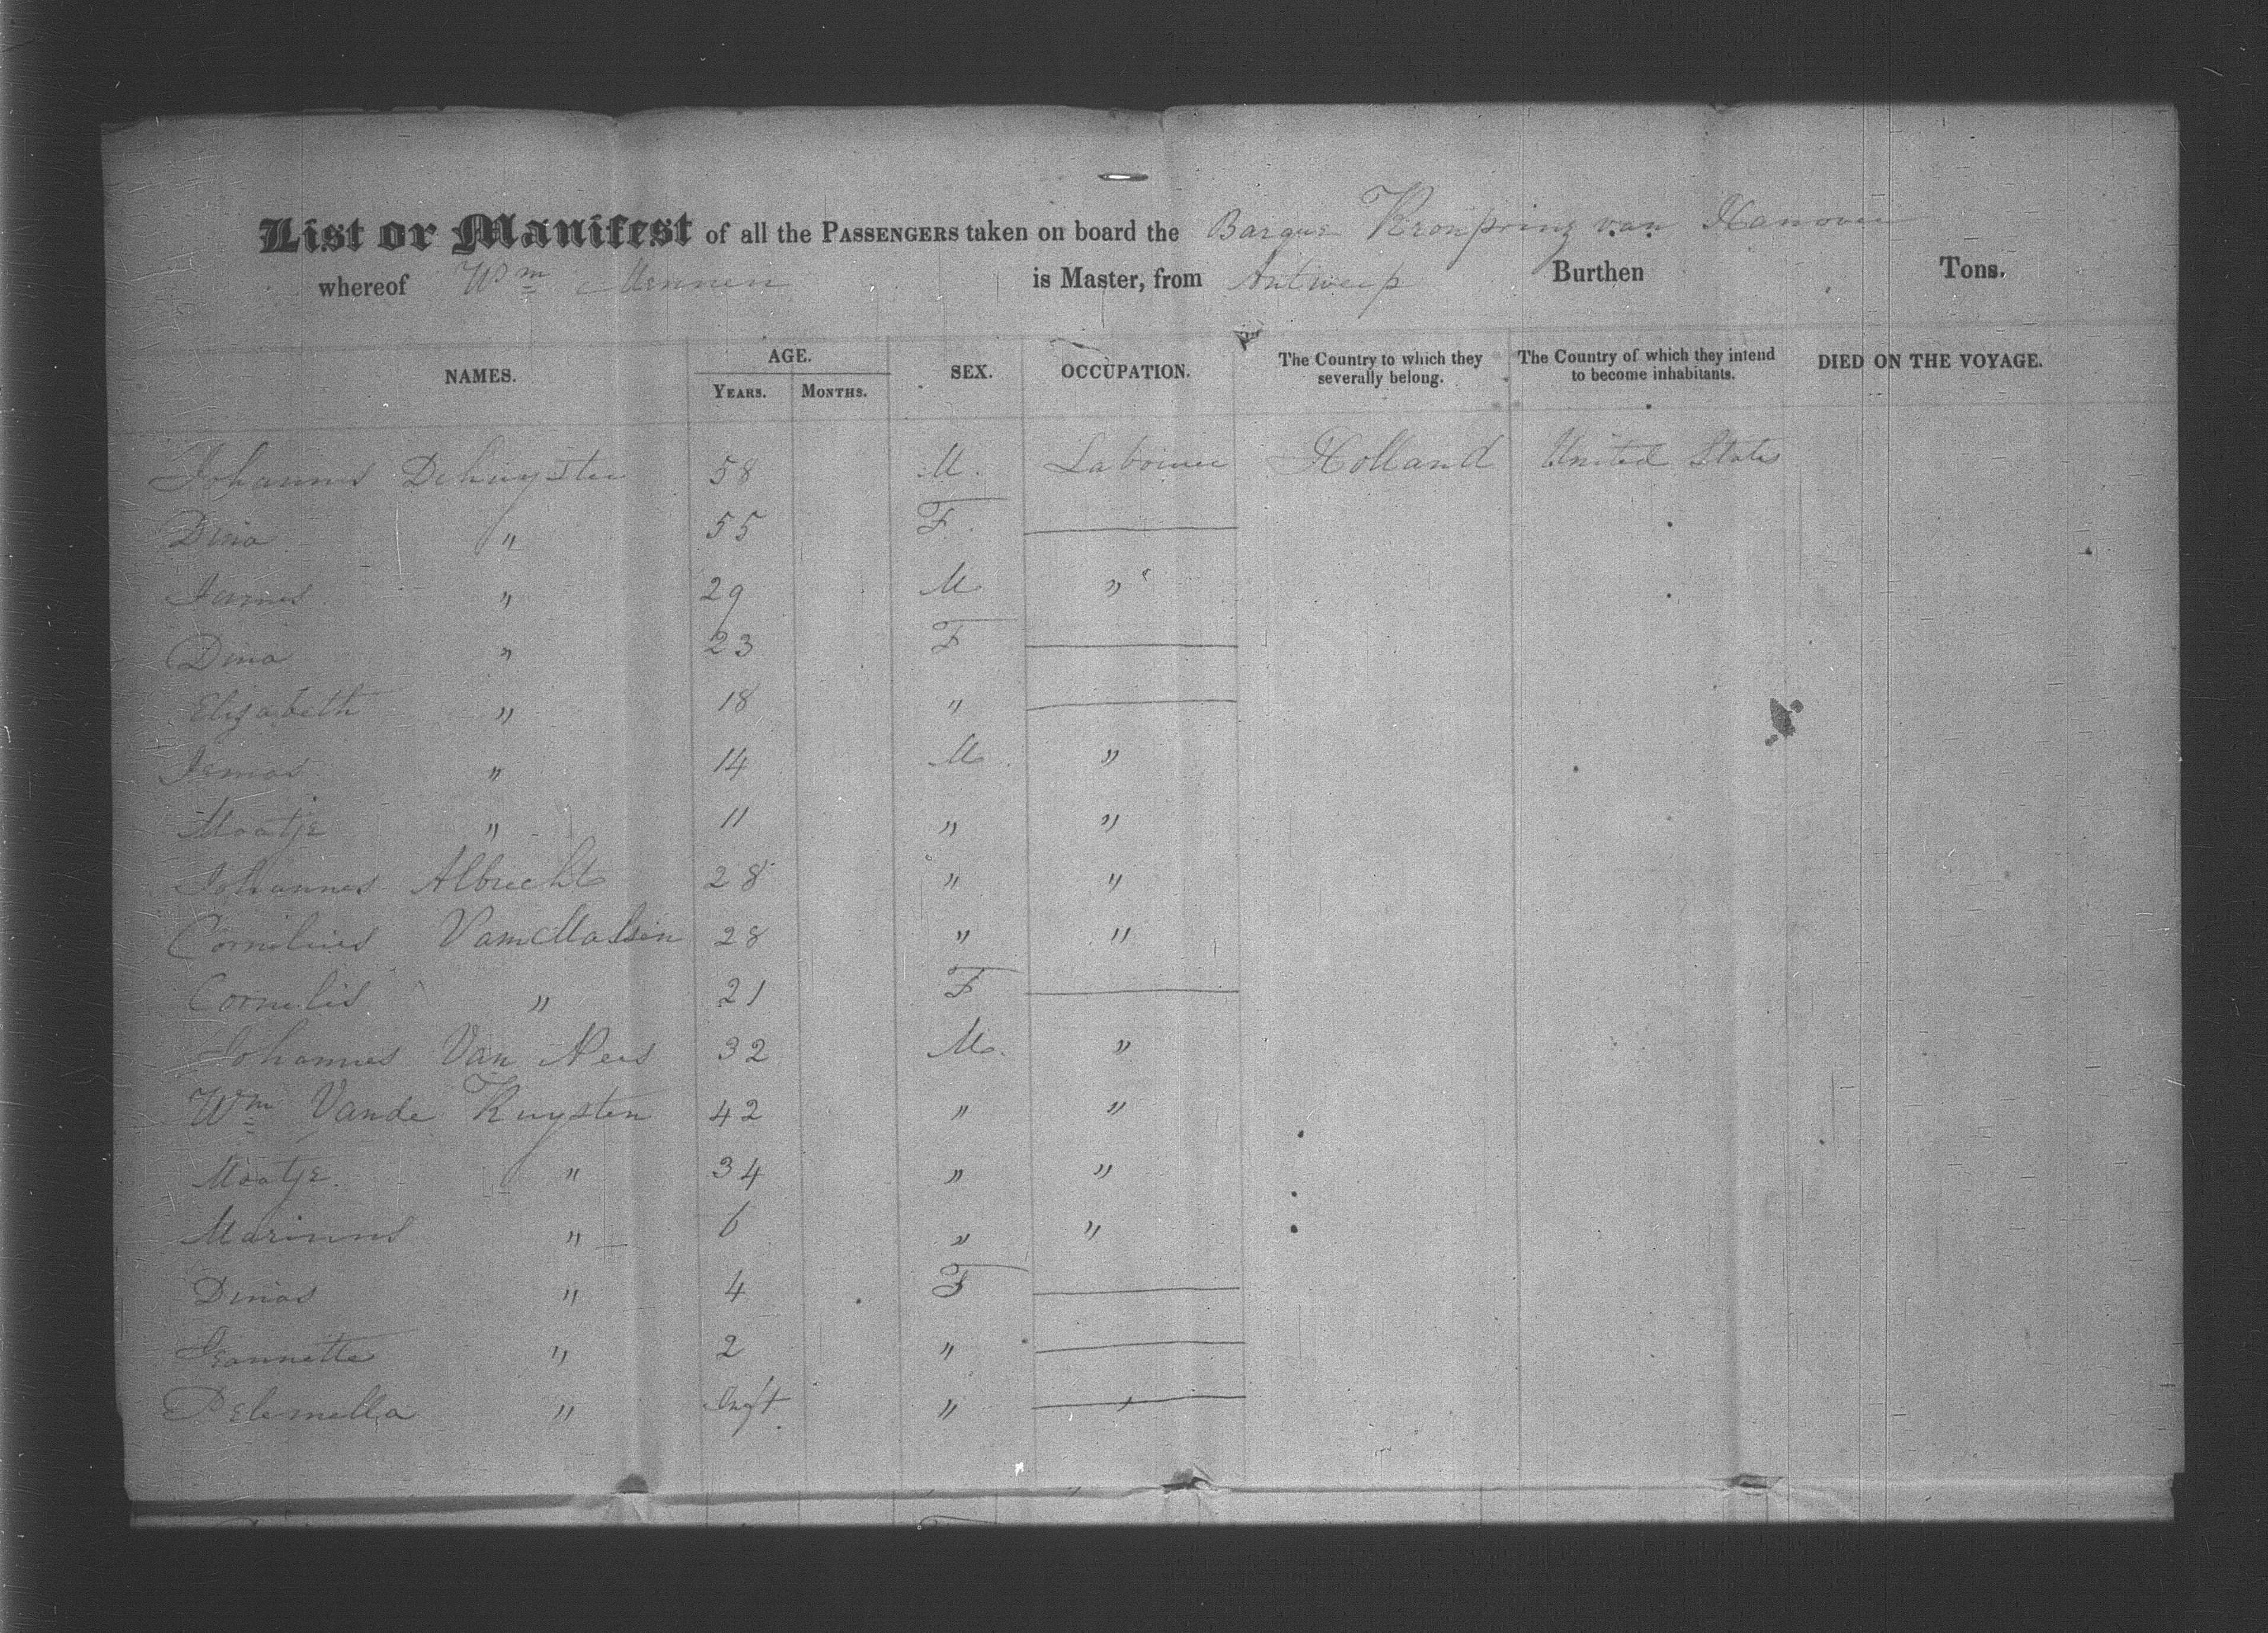 List or Manifest of all the PASSENGERS taken on board the Barque Kronprinz van Hanover
whereof Wm Mennen is Master, from Antwerp Burthen Tons.
NAMES. AGE. SEX. OCCUPATION. The Country to which they severally belong. The Country of which they intend to become inhabitants. DIED ON THE VOYAGE.
YEARS. MONTHS.
Johannes Dehuyster 58 M. Labourer Holland United States
Dina " 55 F.
" 29 M "
Dina " 23 F
Elizabeth " 18 "
" 14 M "
Maatje " 11 " "
Johannes Albrecht 28 " "
Cornelius Van Malsen 28 " "
Cornelis " 21 F
Johannes Van Nees 32 M. "
Wm Vande Kuysten 42 " "
Maatje " 34 " "
Marinus " 6 " "
Dinas " 4 F
Jeannette " 2 "
Pelemella " Inft. "